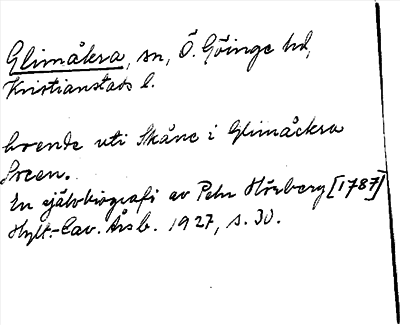 Glimåkra, sn, Ö. Göinge hd,
Kristianstads l.
boende uti Skåne i Glimåckra
Soeen.
En självbiografi av Pehr Hörberg [1787]
Hylt.-Cav. Årsb. 1927, s. 30.